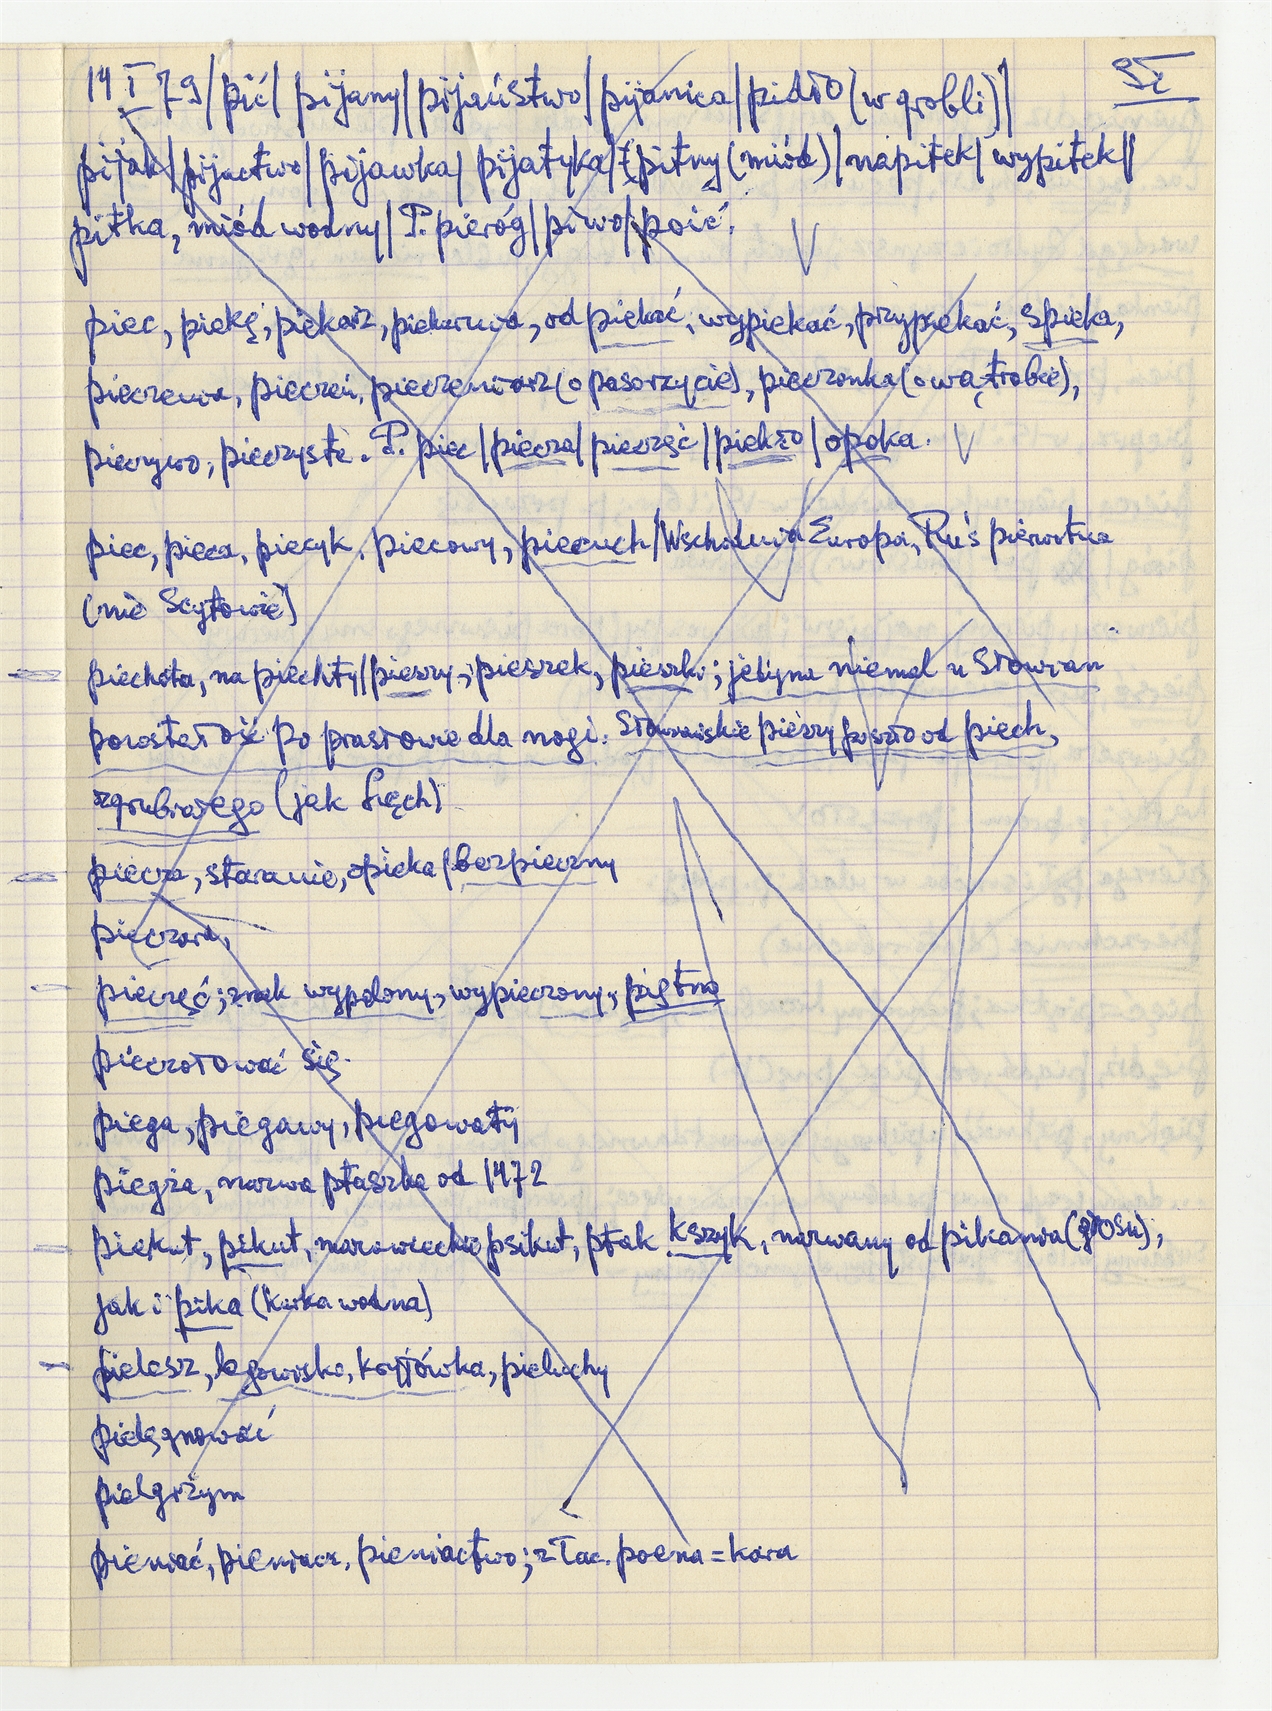 14 I 79 / pić / pijany / pijaństwo / pijanica / pidło (w grobli) /
pijak / pijactwo / pijawka / pijatyka / pitny (miód) / napitek / wypitek //
pitka, miód wodny / P. pieróg / piwo / poić.
piec, piekę, piekarz, piekarnia, od piekać, wypiekać, przypiekać, spieka,
pieczenia, pieczeń, pieczeniarz (o pasorzycie), pieczonka (o wątrobie),
pieczywo, pieczyste. P. piec / piecza / pieczęć / piekło / opoka.
piec, pieca, piecyk, piecowy, piecuch / Wschodnia Europa, Ruś pierwotna
(nie Scytowie)
piechota, na piechty / pieszy, pieszek, pieszki; jedyna niemal u Słowian
pozostałość po prasłowie dla nogi. Słowiańskie pieszy poszło od piech,
zgrubiałego (jak Lęch)
piecza, staranie, opieka / bezpieczny
pieczara,
pieczęć; znak wypalony, wypieczony, piętno
pieczołować się.
piega, piegawy, piegowaty
piegża, nazwa ptaszka od 1472
piekut, pikut, mazowieckie psikut, ptak kszyk, nazwany od pikania (głosu),
jak i pika (kurka wodna)
pielesz, legowisko, kryjówka, pieluchy
pielęgnować
pielgrzym
pieniać, pieniacz, pieniactwo; z łac. poena = kara